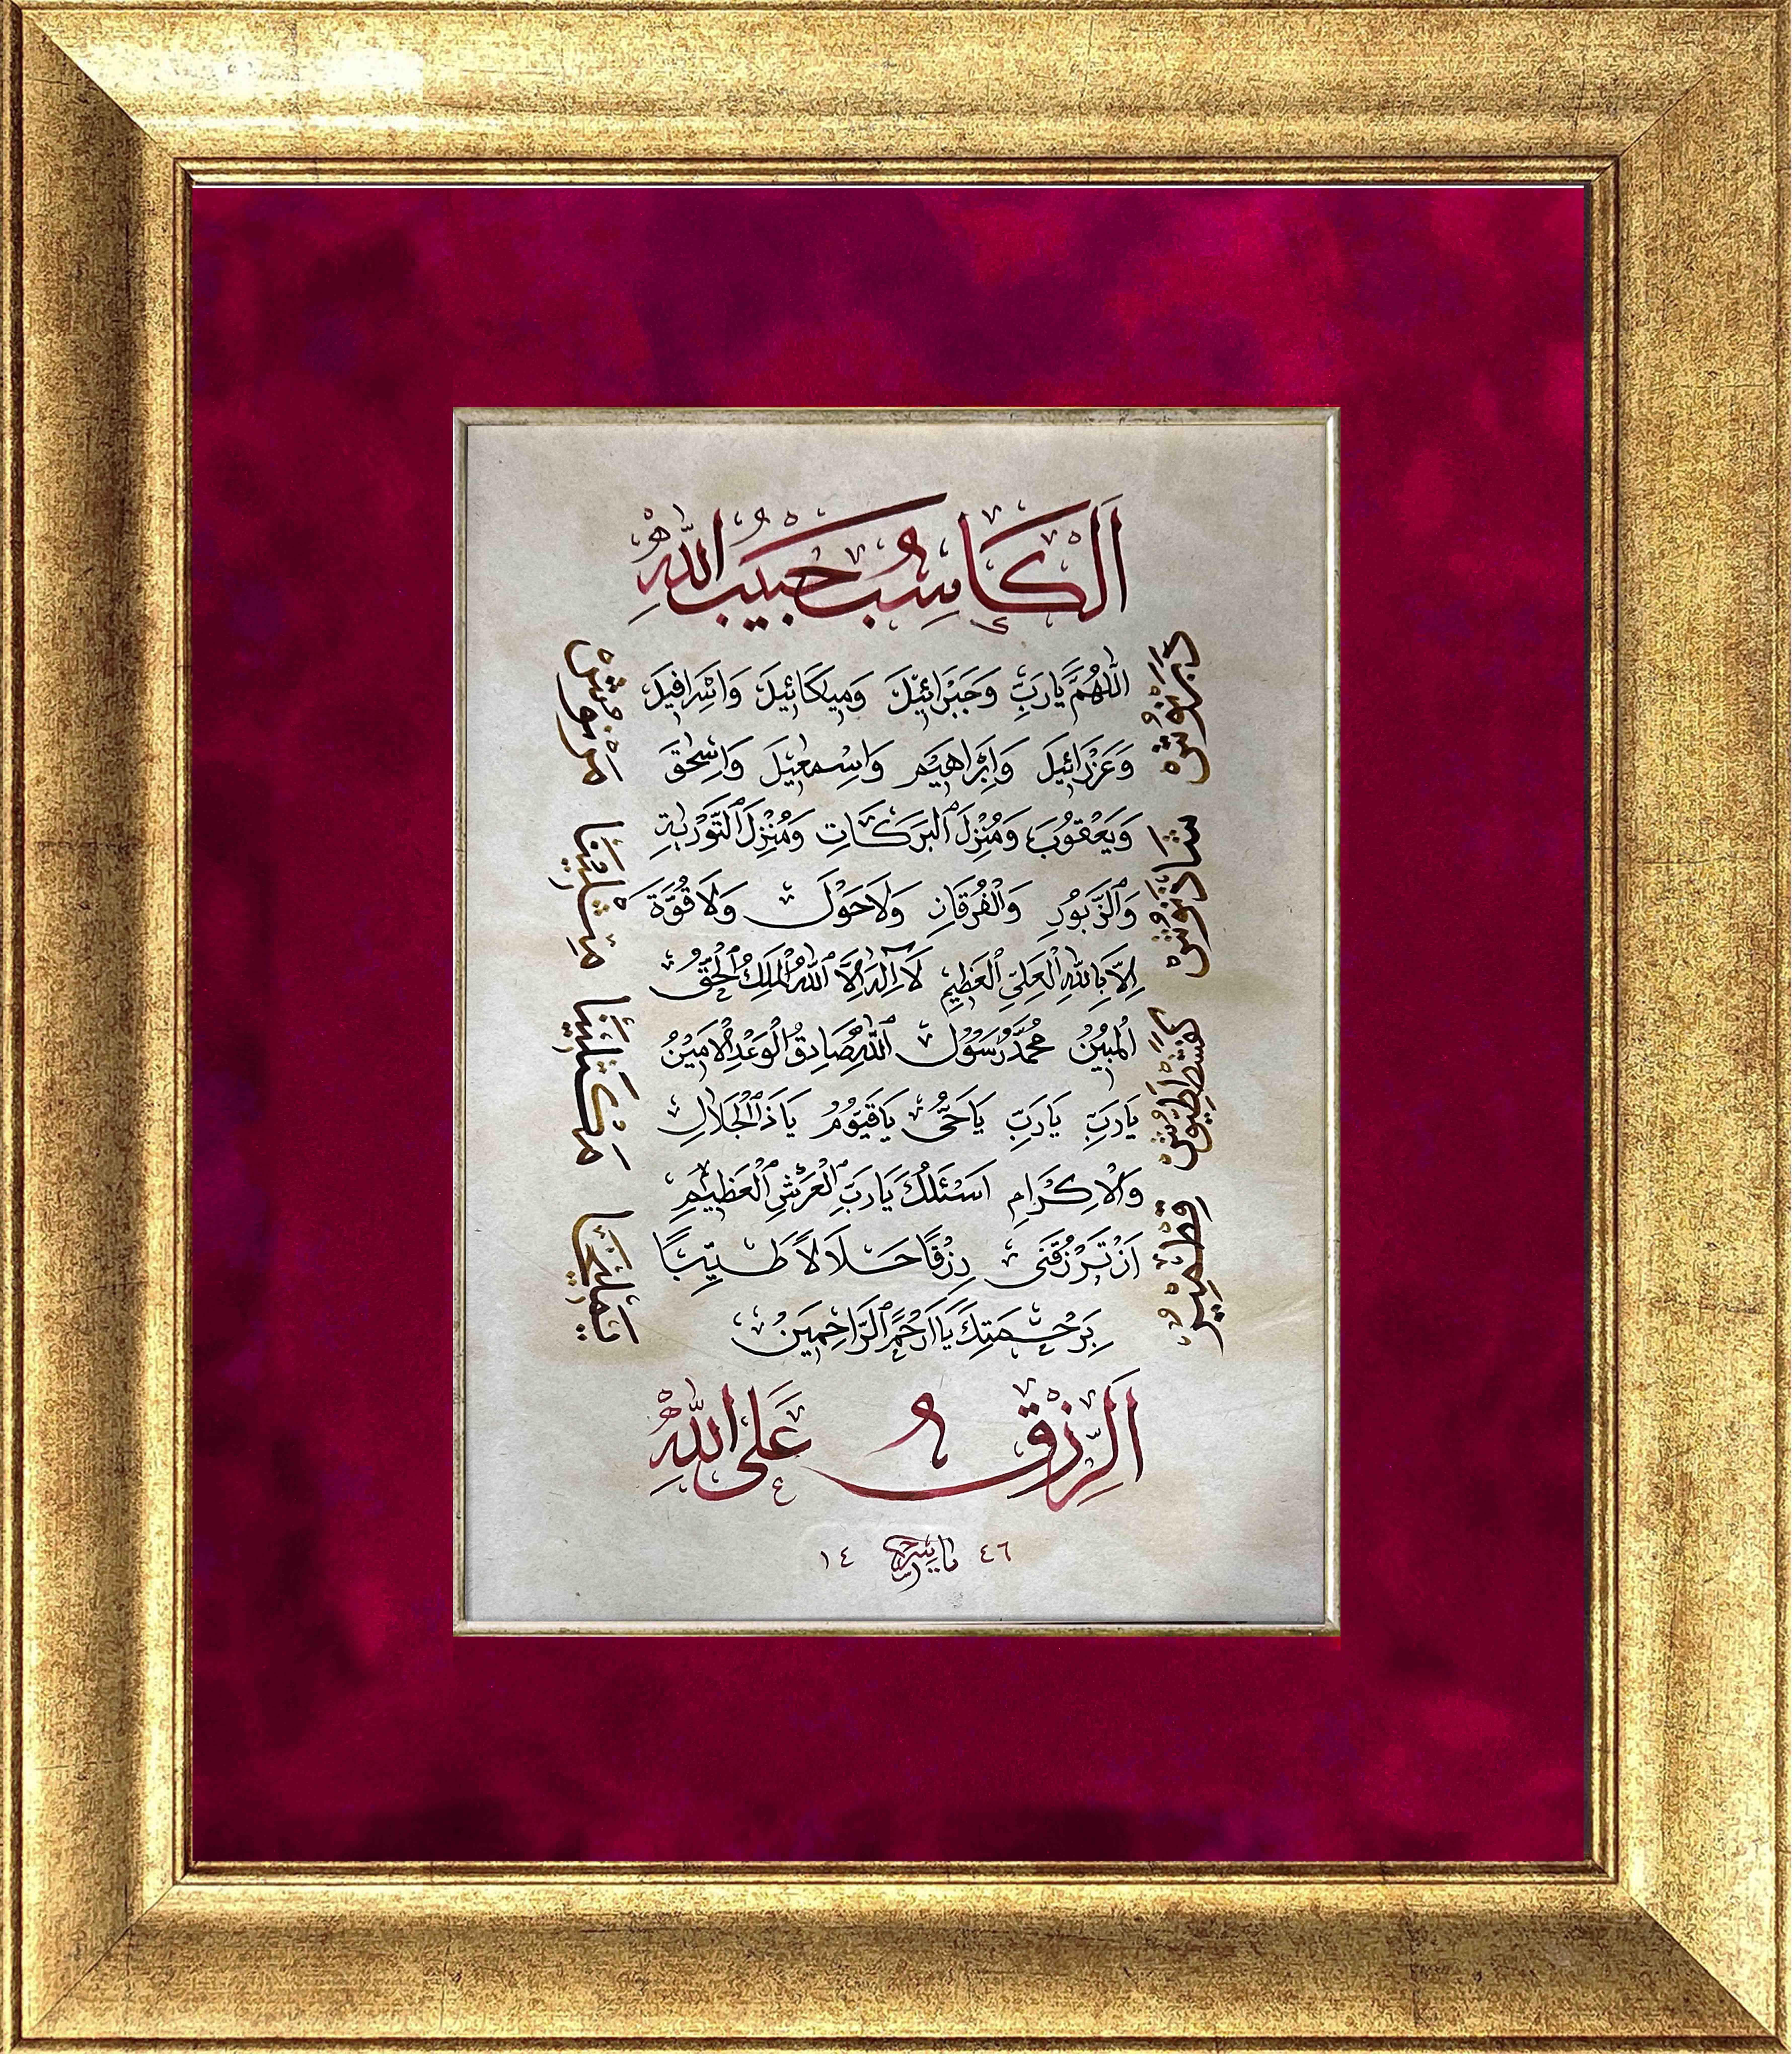 اَلْكَاسِبُ حَبِيبُ اللّٰهِ
اَللّٰهُمَّ يَارَبِّ وَجَبْرَائِيلَ وَمِيكَائِيلَ وَاِسْرَافِيلَ
وَعَزْرَائِيلَ وَاِبْرَاهِيمَ وَاِسْمٰعِيلَ وَاِسْحٰقَ
وَيَعْقُوبَ وَمُنْزِلَ ٱلْبَرَكَاتِ وَمُنْزِلَ ٱلتَّوْرٰيةِ
وَٱلزَّبُورِ وَٱلْفُرْقَانِ وَلَاحَوْلَ وَلَا قُوَّةَ
اِلَّا بِاللّٰهِ ٱلْعَلِيِّ ٱلْعَظِيمِ لَا اِلٰهَ اِلَّا ٱللّٰهُ ٱلْمَلِكُ ٱلْحَقُّ
الْمُبِينُ مُحَمَّدٌ رَسُولُ ٱللّٰهِ صَادِقُ الْوَعْدِ الْاَمِينُ
يَارَبِّ يَارَبِّ يَاحَىُّ يَاقَيُّومُ يَاذَا ٱلْجَلَالِ
وَالْاِكْرَامِ اَسْئَلُكَ يَارَبَّ ٱلْعَرْشِ ٱلْعَظِيمِ
اَنْ تَرْزُقَنِى رِزْقًا حَلَالًا طَيِّبًا
بِرَحْمَتِكَ يَا اَرْحَمَ ٱلرَّاحِمِينَ
دَبَرْنُوشْ شَاذَنُوشْ كَفَشْطَطَيُوشْ قِطْمِيرْ
مَرْنُوشْ مِثْلِينَا مَكْثَلِينَا يَمْلِيخَا
اَلرِّزْقُ عَلَى اللّٰهِ
١٤ ٤٦